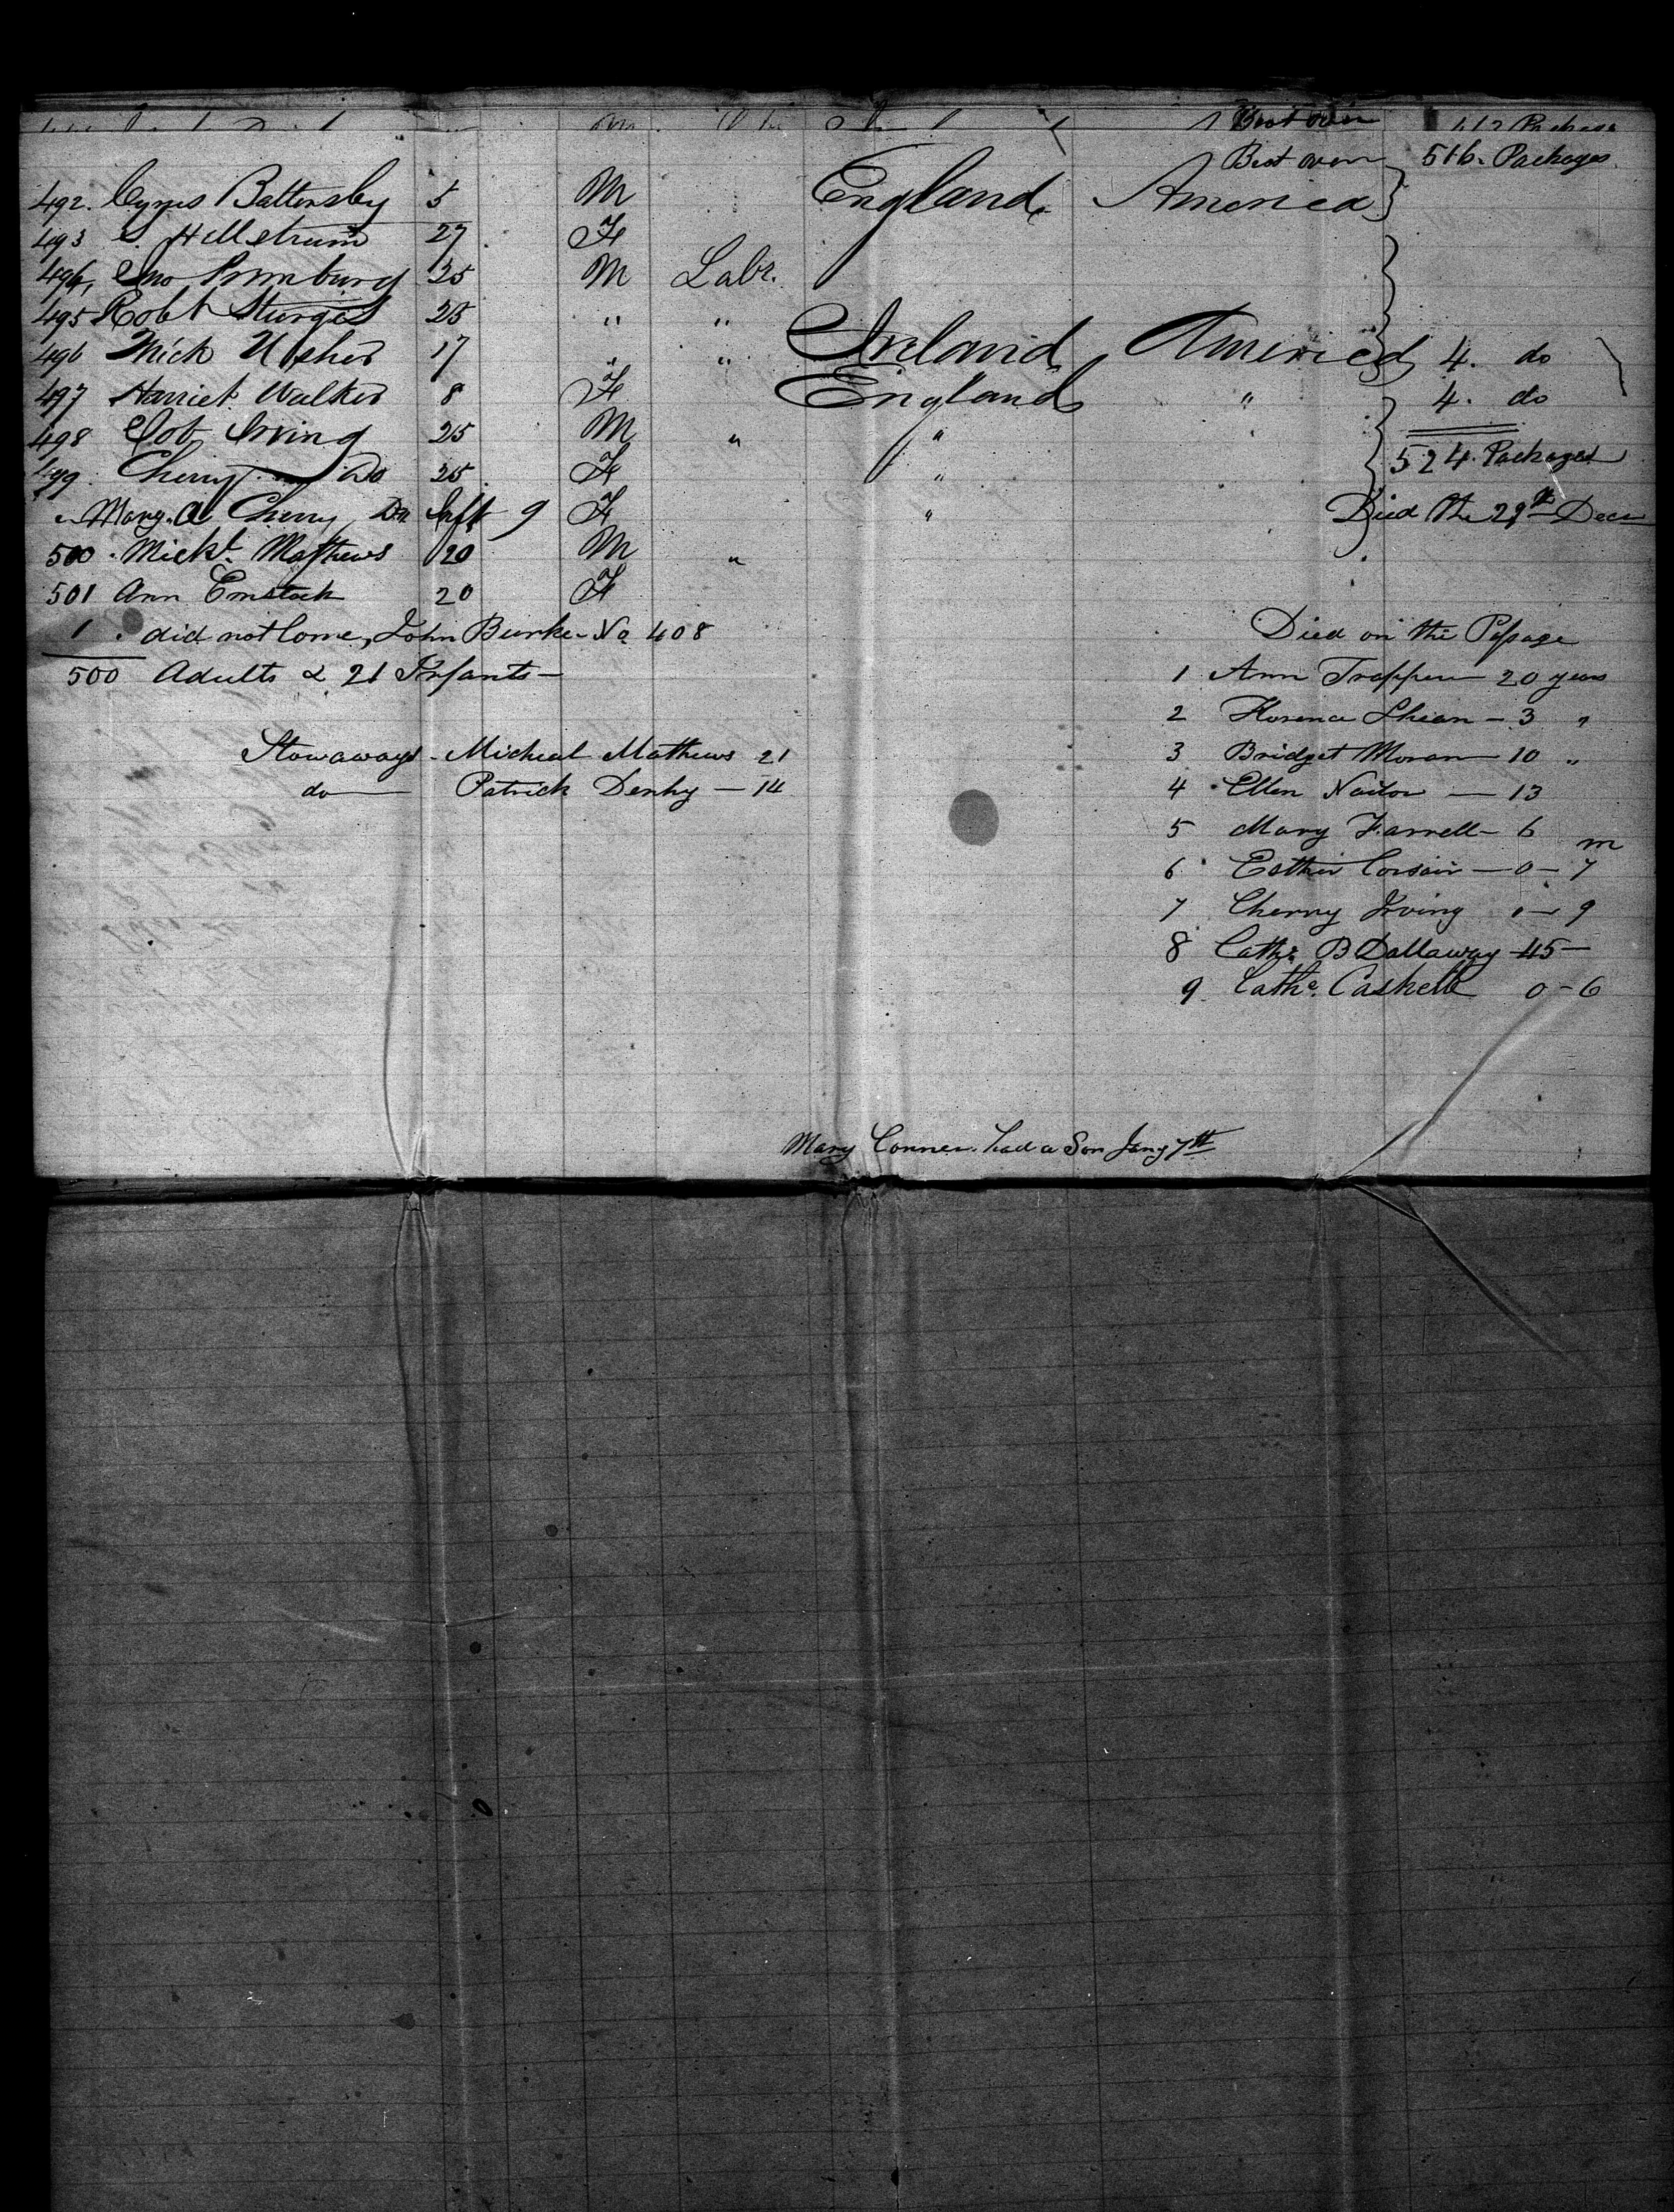 Bro't over
Bro't over 516. Packages
492. Cyrus Battersby 5 M England America
493 S. Hillstrum 27 F
494, Jno 25 M Labr.
495 Robt Sturges 25 " "
496 Mick Usher 17 " " Ireland America 4. do
497 Harriet Walker 8 F England " 4. do
498 Rob Irving 25 M " "
524. Packages
499. Cherry Do 25 F "
" Mary. A Cherry Do Inft 9 F " Died the 29th Decr
500. Mickl. Mathews 20 M "
501 Ann Comstock 20 F
1. did not Come, John Burke - No 408
500 Adults & 21 Infants -
Stowaways - Micheal Mathews 21
do — Patrick Denhy — 14
Died on the Passage
1 Ann Trapper — 20 years
2 Florence Shean - 3 "
3 Bridget Moran — 10 "
4 Ellen Nailor — 13
5 Mary Farrell - 6
m
6 Esther Corsair — 0 - 7
7 Cherry Irving 0 - 9
8 Cathe. B Dallaway - 45 -
9 Cathe. Caskell 0 - 6
Mary Conner. had a Son Jany 7th